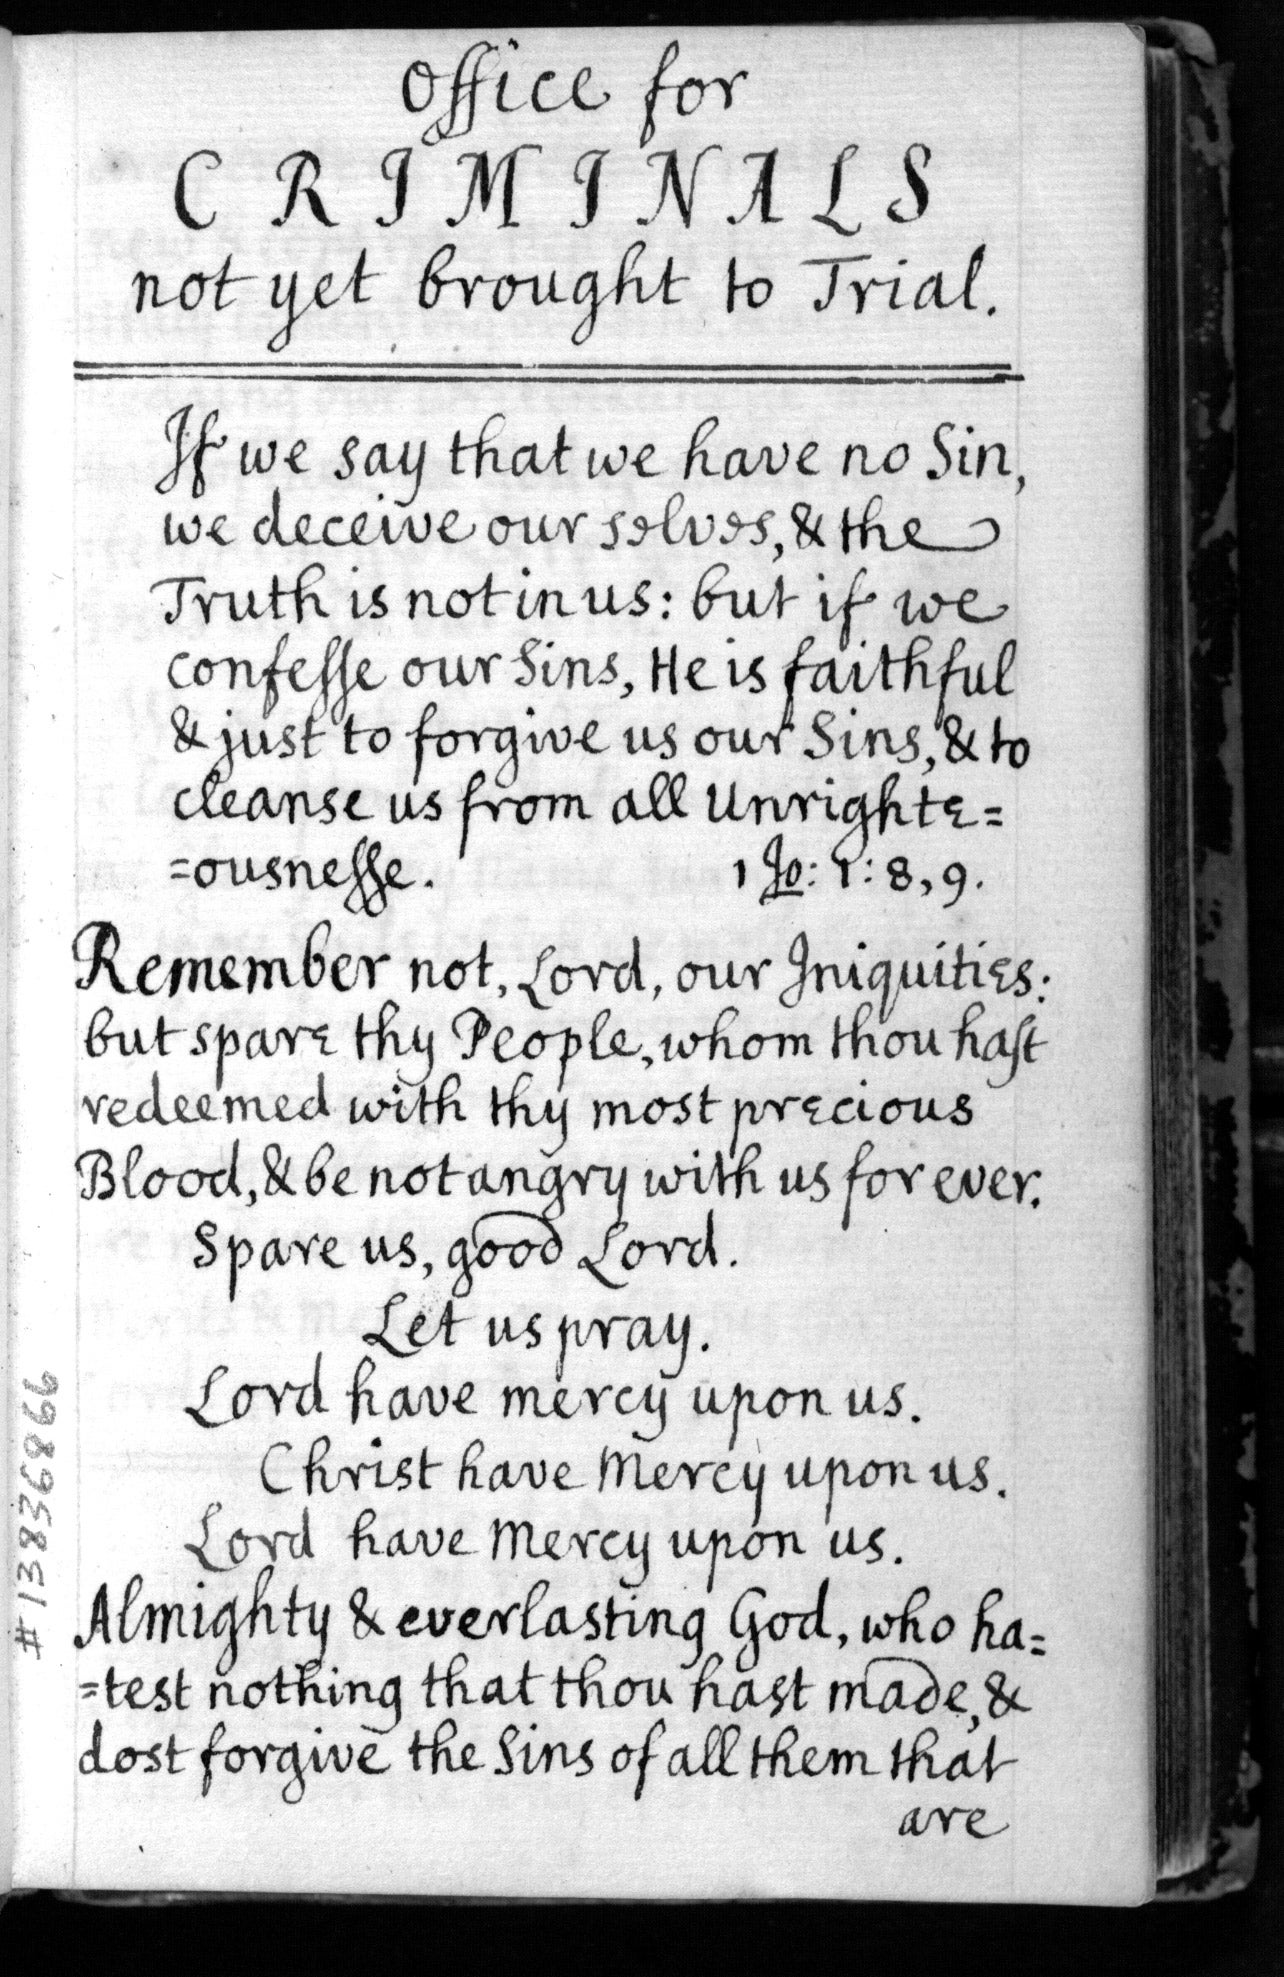 Office for
CRIMINALS
not yet brought to Trial.
If we say that we have no Sin,
we deceive our selves, & the
Truth is not in us: but if we
confesse our Sins, He is faithful
& just to forgive us our Sins, & to
cleanse us from all Unrighte=
=ousnesse. 1 Jo: 1: 8, 9.
Remember not, Lord, our Iniquities:
but spare thy People, whom thou hast
redeemed with thy most precious
Blood, & be not angry with us for ever.
Spare us, good Lord.
Let us pray.
Lord have mercy upon us.
Christ have Mercy upon us.
Lord have Mercy upon us.
Almighty & everlasting God, who ha=
=test nothing that thou hast made, &
dost forgive the Sins of all them that
are
#13836866